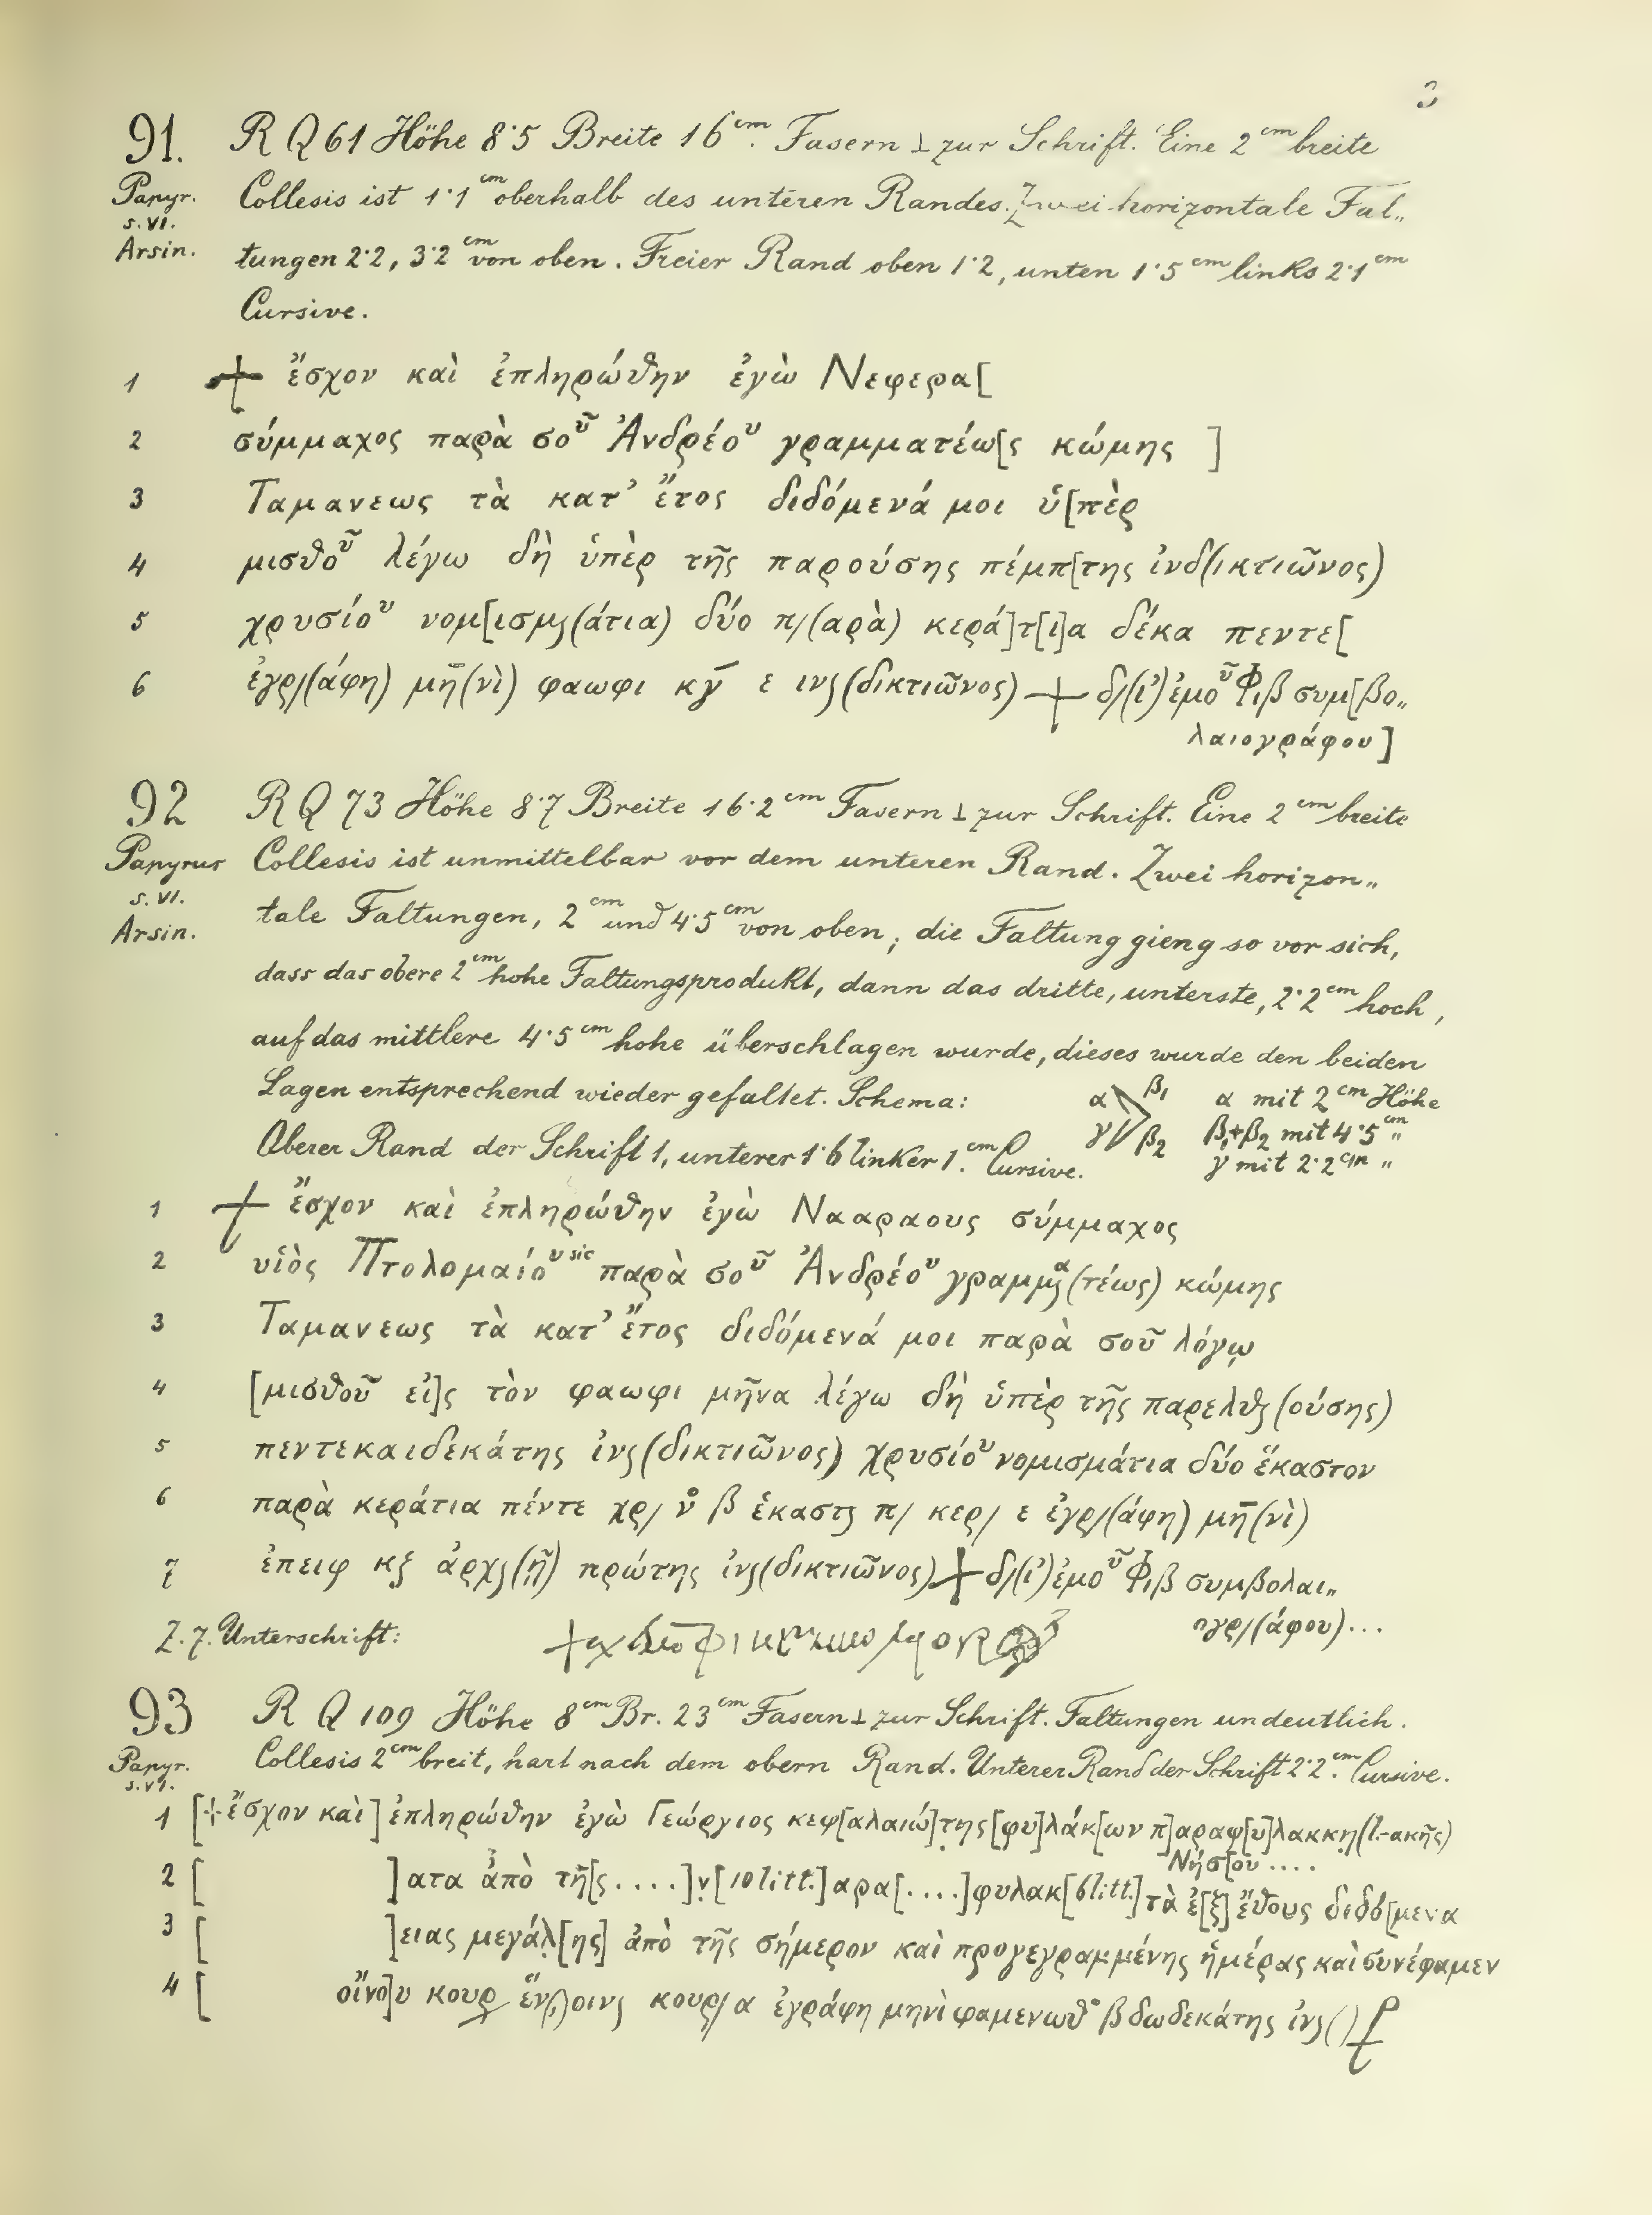 3
91. R Q 61 Höhe 8·5 Breite 16 cm. Fasern ⊥ zur Schrift. Eine 2 cm breite
Papyr. Collesis ist 1·1 cm oberhalb des unteren Randes. Zwei horizontale Fal„
s. VI.
Arsin. tungen 2·2, 3·2 cm von oben. Freier Rand oben 1·2, unten 1·5 cm links 2·1 cm
Cursive.
1 + ἔσχον καὶ ἐπληρώθην ἐγὼ Νεφερα[
2 σύμμαχος παρὰ σοῦ Ἀνδρέου γραμματέω[ς κώμης ]
3 Ταμανεως τὰ κατ’ ἔτος διδόμενά μοι ὑ[πὲρ
4 μισθοῦ λέγω δὴ ὑπὲρ τῆς παρούσης πέμπ[της ἰνδ(ικτιῶνος)
5 χρυσίου νομ[ισμʃ(άτια) δύο π/(αρὰ) κερά]τ[ι]α δέκα πεντε[
6 ἐγρ/(άφη) μη̄(νὶ) φαωφι κγ̄ ε ινʃ(δικτιῶνος) + δ/(ι’) ἐμοῦ Φιβ συμ[βο„
λαιογράφου]
92 R Q 73 Höhe 8·7 Breite 16·2 cm Fasern ⊥ zur Schrift. Eine 2 cm breite
Papyrus Collesis ist unmittelbar vor dem unteren Rand. Zwei horizon„
s. VI.
Arsin. tale Faltungen, 2 cm und 4·5 cm von oben; die Faltung gieng so vor sich,
dass das obere 2 cm hohe Faltungsprodukt, dann das dritte, unterste, 2·2 cm hoch,
auf das mittlere 4·5 cm hohe überschlagen wurde, dieses wurde den beiden
Lagen entsprechend wieder gefaltet. Schema: α β1 α mit 2 cm Höhe
γ β2 β1+β2 mit 4·5 cm „
Oberer Rand der Schrift 1, unterer 1·6 linker 1. cm Cursive. γ mit 2·2 cm „
1 + ἔσχον καὶ ἐπληρώθην ἐγὼ Νααραους σύμμαχος
2 υἱὸς Πτολομαίου sic παρὰ σοῦ Ἀνδρέου γραμμʃα(τέως) κώμης
3 Ταμανεως τὰ κατ’ ἔτος διδόμενά μοι παρὰ σοῦ λόγῳ
4 [μισθοῦ εἰ]ς τὸν φαωφι μῆνα λέγω δὴ ὑπὲρ τῆς παρελθʃ(ούσης)
5 πεντεκαιδεκάτης ἰνʃ(δικτιῶνος) χρυσίου νομισμάτια δύο ἕκαστον
6 παρὰ κεράτια πέντε χρ/ ν̊ β ἑκαστʃ π/ κερ/ ε ἐγρ/(άφη) μη̄(νὶ)
7 ἐπειφ κξ ἀρχʃ(ῇ) πρώτης ἰνʃ(δικτιῶνος) + δ/(ι’) ἐμοῦ Φιβ συμβολαι„
ογρ/(άφου)...
Z. 7. Unterschrift:
93 R Q 109 Höhe 8 cm Br. 23 cm Fasern ⊥ zur Schrift. Faltungen undeutlich.
Papyr. Collesis 2 cm breit, hart nach dem obern Rand. Unterer Rand der Schrift 2·2. cm Cursive.
s. VI.
1 [+ ἔσχον καὶ] ἐπληρώθην ἐγὼ Γεώργιος κεφ[αλαιώ]της [φυ]λάκ[ων π]αραφ[υ]λακκη (l. -ακῆς)
Νήσ[ου ....
2 [ ]ατα ἀπὸ τῆ[ς ....]ν[10 litt.]αρα[....]φυλακ[6 litt.] τὰ ἐ[ξ] ἔθους διδό[μενα
3 [ ]ειας μεγάλ[ης] ἀπὸ τῆς σήμερον καὶ προγεγραμμένης ἡμέρας καὶ συνέφαμεν
4 [ οἴνο]υ κουρ ἕν(.)οινʃ κουρ/α ἐγράφη μηνὶ φαμενωθ β δωδεκάτης ἰνʃ( )